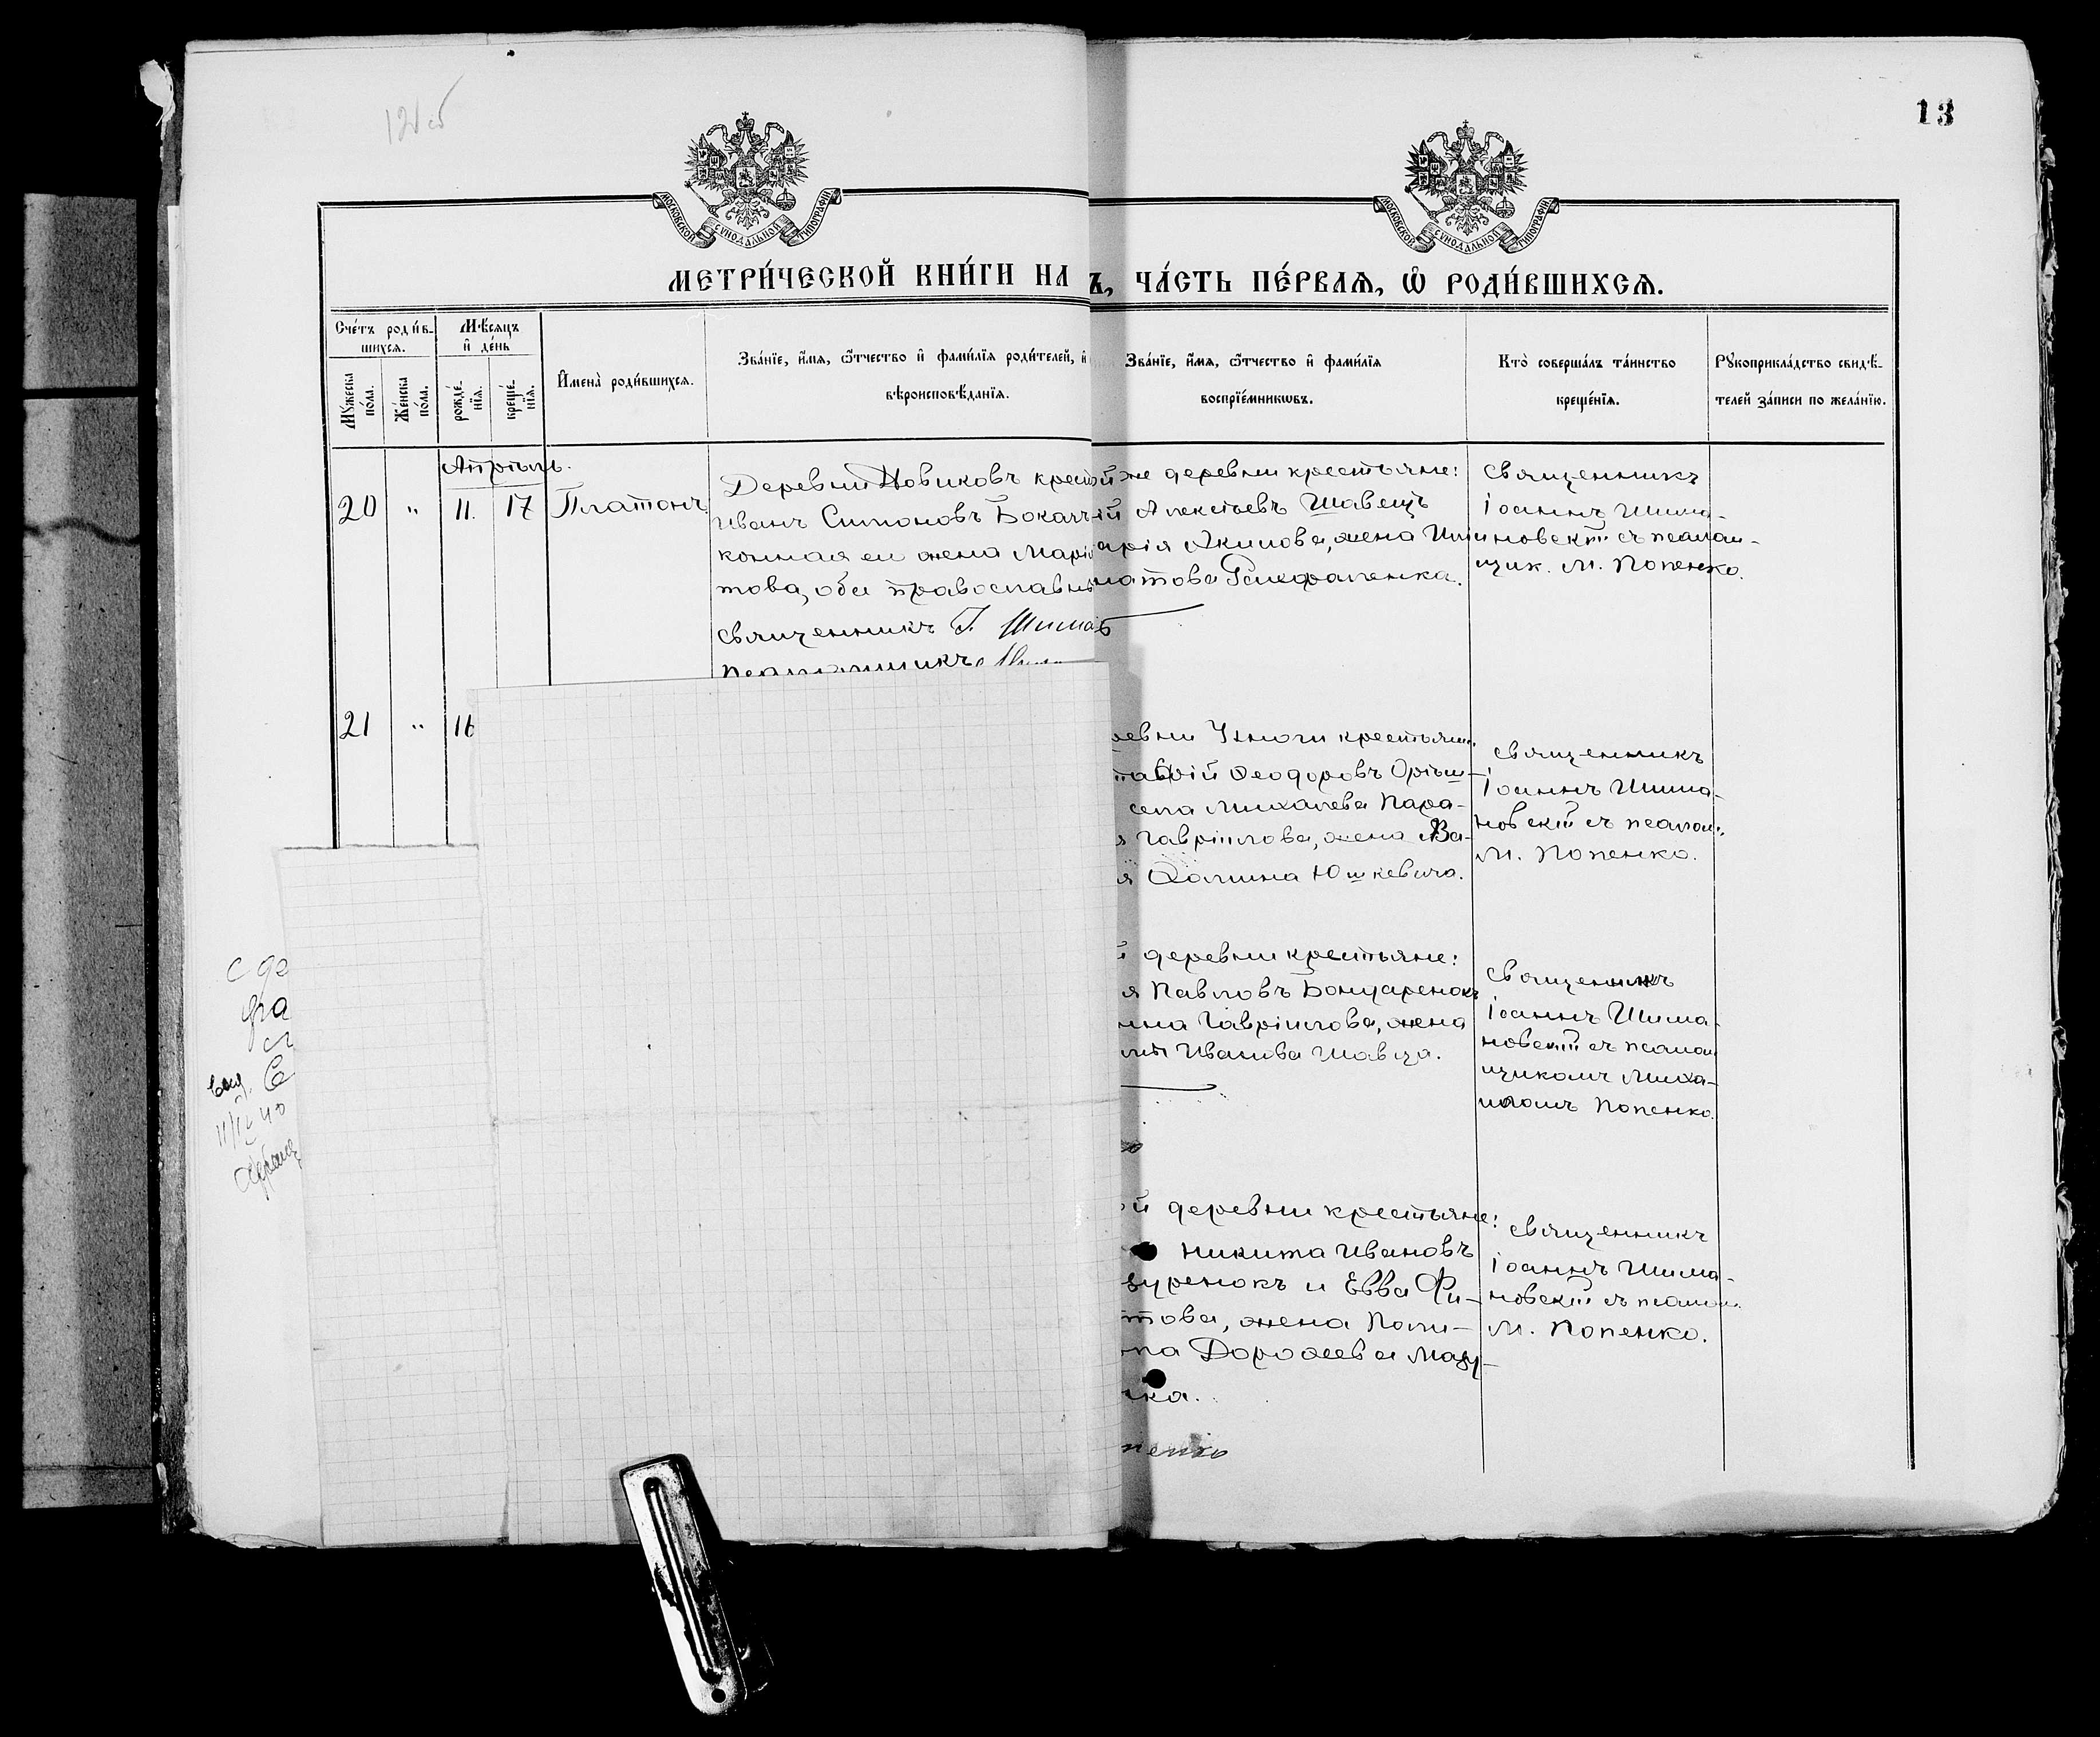 12 об
13
МОСКОВСКОЙ СѴНОДАЛЬНОЙ ТИПОГРАФІИ
МОСКОВСКОЙ СѴНОДАЛЬНОЙ ТИПОГРАФІИ
МЕТРИ́ЧЕСКОЙ КНИ́ГИ НА
Ъ, ЧА́СТЬ ПЕ́РВАѦ, Ѡ҆ РОДИ́ВШИХСѦ.
Сче́тъ роди́в-
шихсѧ.
Мѣ́сѧцъ
и҆ де́нь
Мꙋ́жеска
по́ла.
Же́нска
по́ла.
рожде́-
нїѧ.
креще́-
нїѧ.
И҆мена̀ роди́вшихсѧ.
Зва́нїе, и҆́мѧ, ѻ҆́тчество и҆ фами́лїѧ роди́телей, и҆
вѣроисповѣ́данїѧ.
Зва́нїе, и҆́мѧ, ѻ҆́тчество и҆ фами́лїѧ
воспрїе́мникѡвъ.
Кто̀ соверша́лъ та́инство
креще́нїѧ.
Рꙋкоприкла́дство свидѣ́-
телей за́писи по жела́нїю.
Апрѣль.
20 " 11. 17 Платонъ
Деревни Новиковъ крест
Иванъ Симоновъ Бокач
конная его жена Марія
това, оба православн
священникъ І. Шима
Псаломщикъ
ой же деревни крестьяне:
ій Алексѣевъ Шавецъ
арія Акимова, жена
натова
священникъ
Іоаннъ Шима-
новскій съ псалом-
щик. М. Попенко.
21 " 16
ревни крестьян.
Ѳеодоровъ
села Михалева Пара-
я Гавріилова, жена Ва-
я Ѳомина Юшкевича.
священникъ
Іоаннъ Шима-
новскій съ псалом.
М. Попенко.
й деревни крестьяне:
я Павловъ Бондаренокъ
нна Гавріилова, жена
Иванова Шавца.
священникъ
Іоаннъ Шима-
новскій съ псалом
щикомъ Миха-
иломъ Попенко.
ой деревни крестьяне:
Никита Ивановъ
зуренокъ и Евва Фи-
това, жена Поли-
па Дорофеева Мазу-
нка.
пенко
священникъ
Іоаннъ Шима-
новскій съ псалом.
М. Попенко.
с де